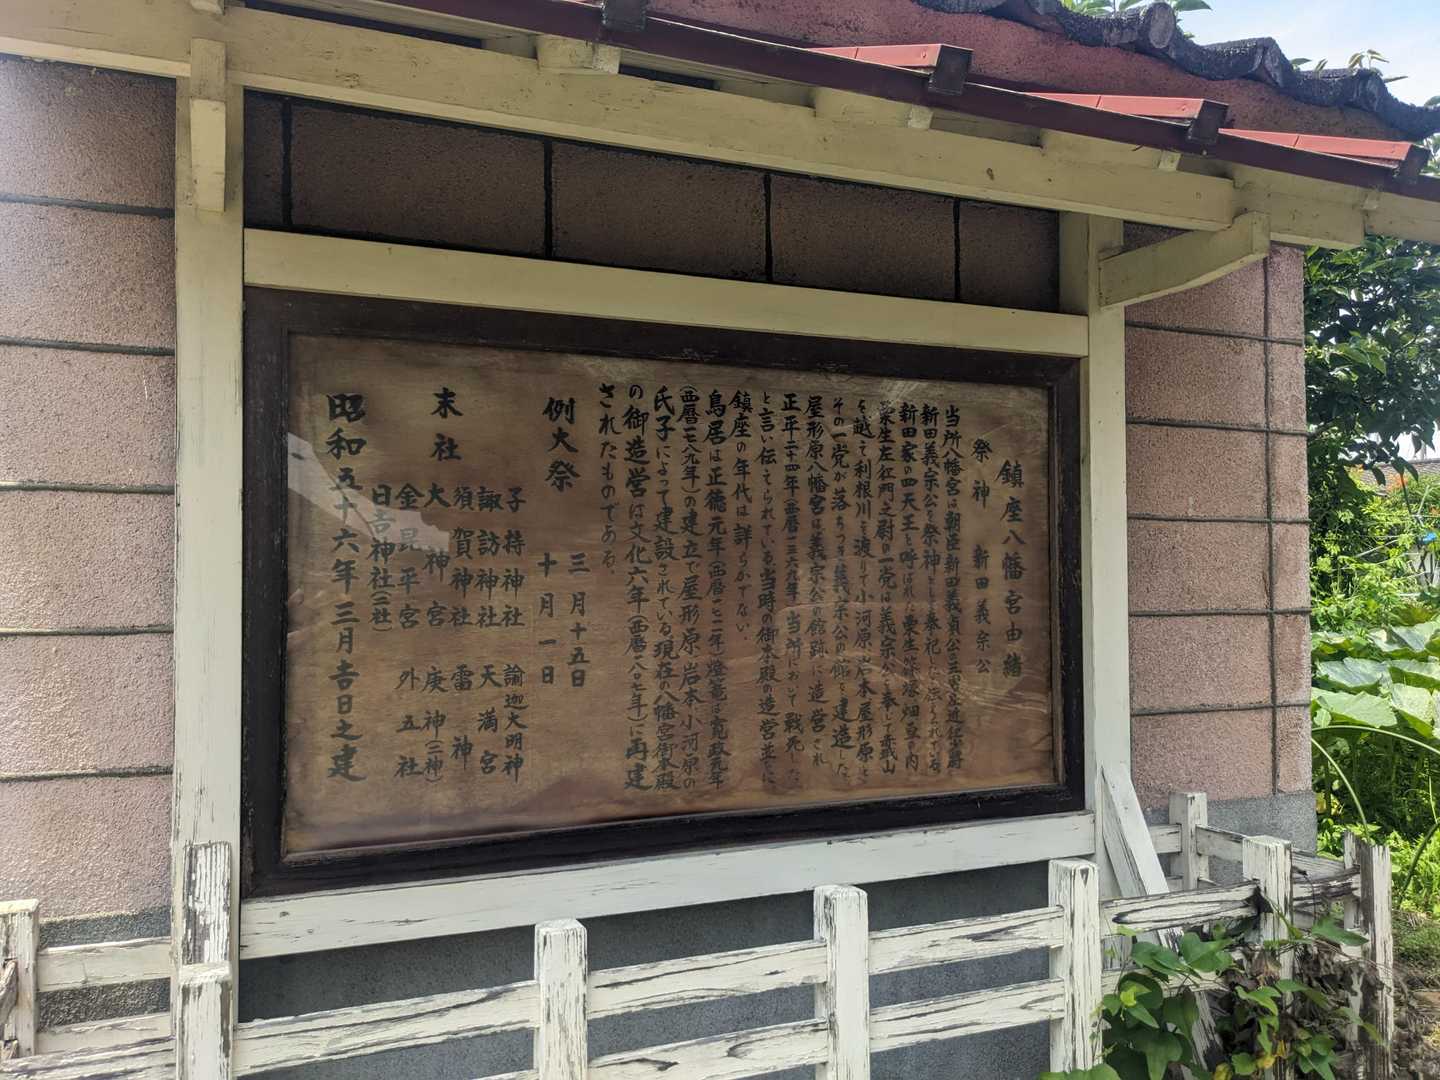 鎮座八幡宮由緒
祭神 新田義宗公
当所八幡宮は朝臣新田義貞公三男左近衛少将
新田義宗公を祭神として奉祀し
新田家の四天王と呼ばれた栗生篠塚畑亘の内
栗生左衛門之尉の一党は義宗公を奉じて武山
を越えて利根川を渡りて小河原、岩本、屋形原と
その一党が落ちつき義宗公の館を建造した、
屋形原八幡宮は義宗公の館跡に造営され
正平二十四年(西暦一三六九年)当所において戦死した
と言い伝えられている当時の御本殿の造営並びに
鎮座の年代は詳らかでない、
鳥居は正徳元年(西暦一七一一年)燈篭は寛政元年
(西暦一七八九年)の建立で屋形原、岩本、小河原の
氏子によって建設されている現在の八幡宮御本殿
の御造営は文化六年(西暦一八〇七年)に再建
されたものである。
例大祭 三月十五日
十月一日
末社 子持神社 諭迦大明神
諏訪神社 天満宮
須賀神社 雷神
大神宮 庚神(二神)
金昆平宮 外五社
日吉神社(三社)
昭和五十六年三月吉日之建